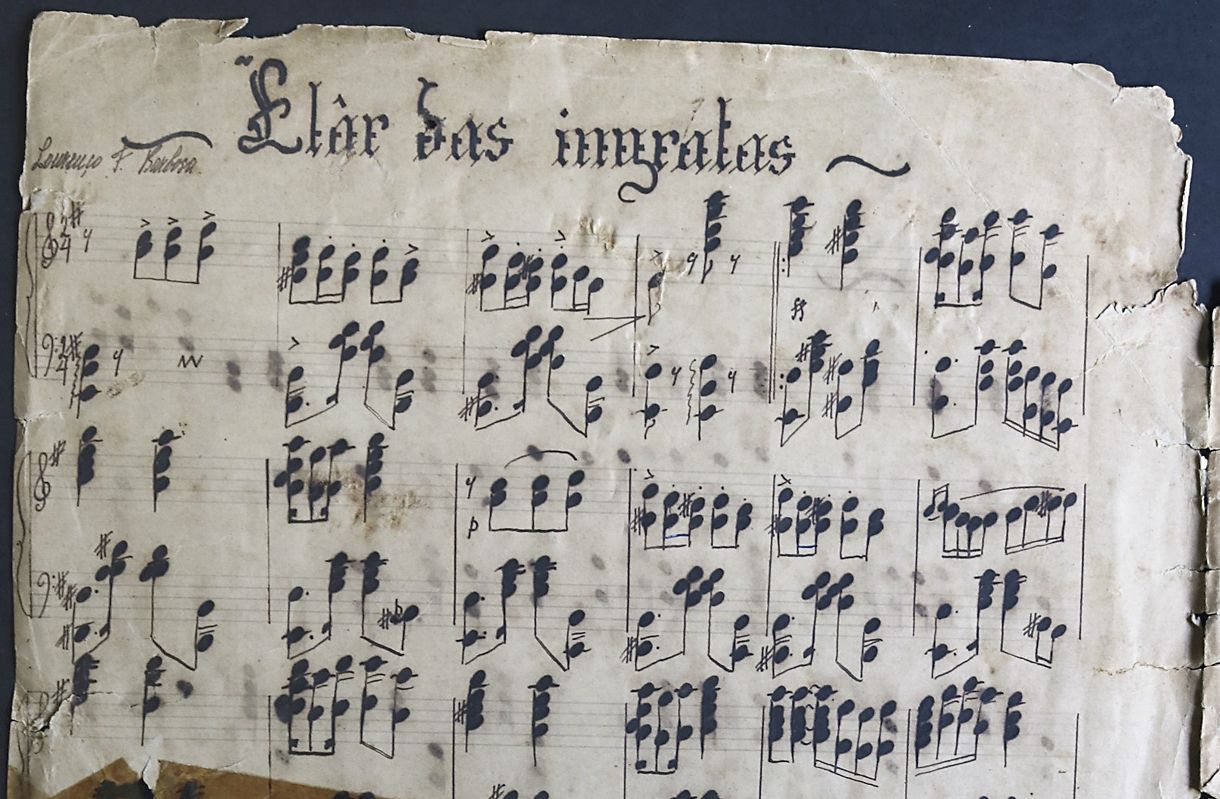 Flôr das ingratas
Lourenço F. Barbosa